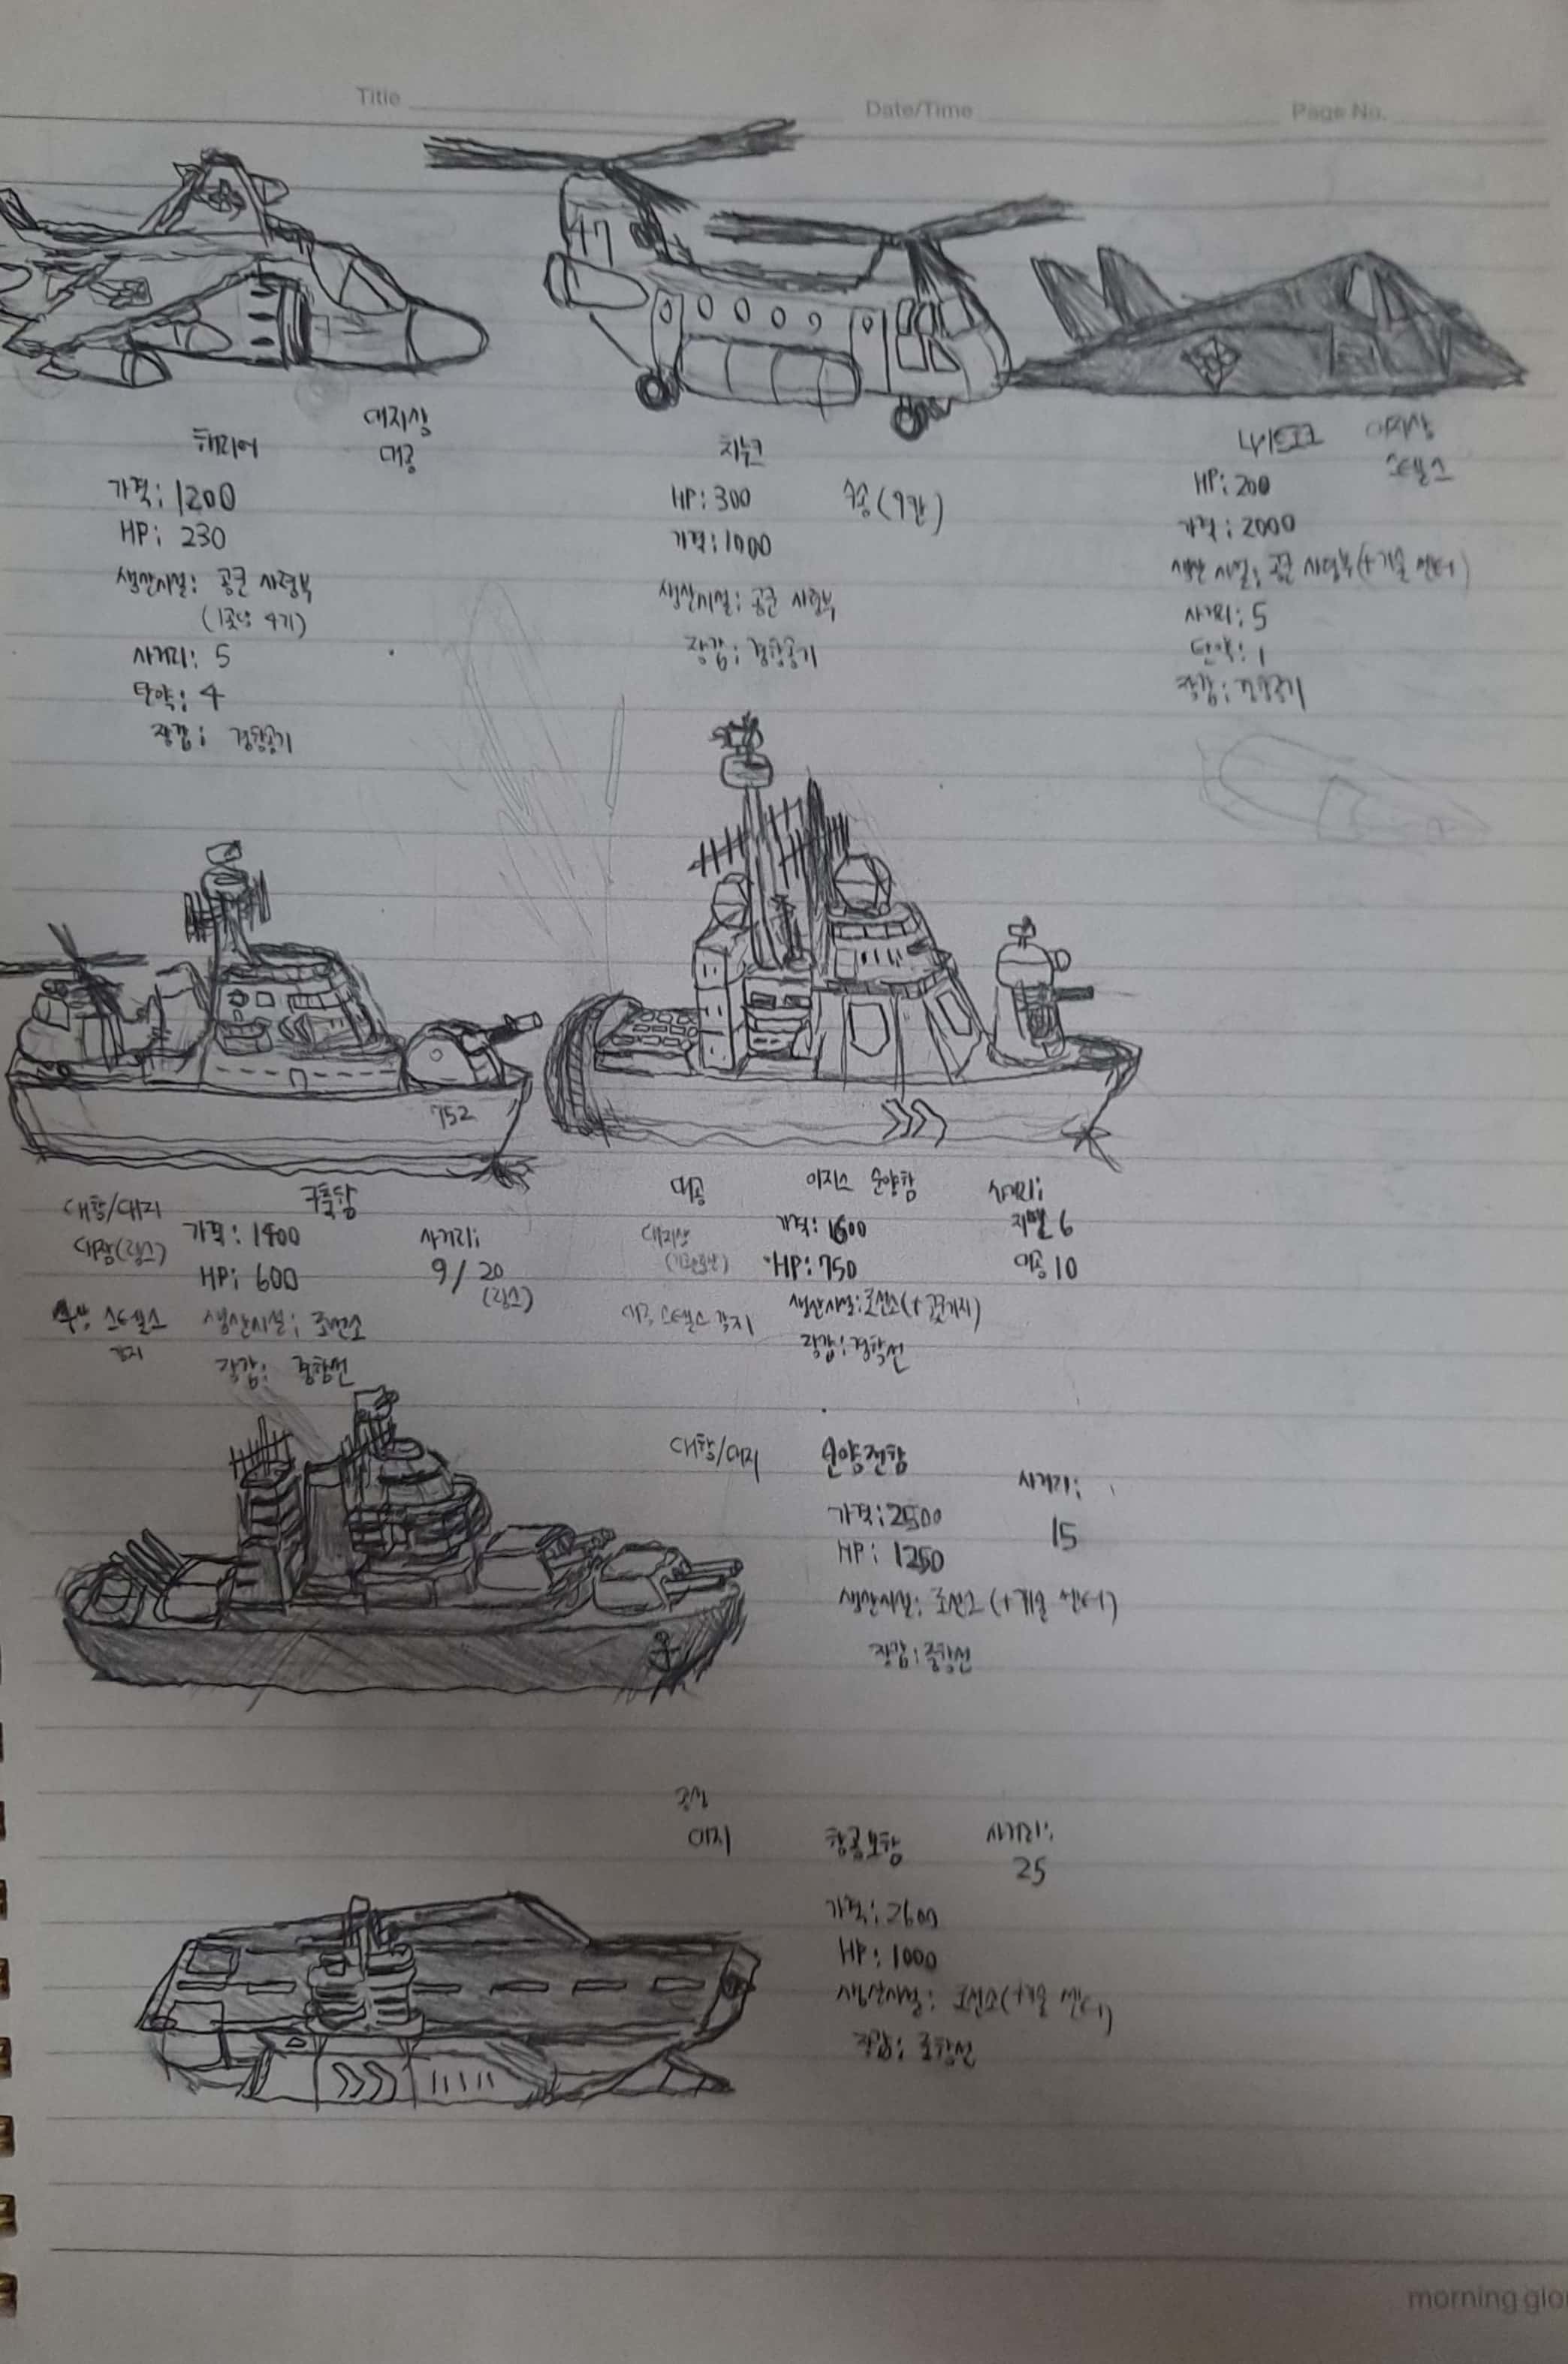 Title
Date/Time
Page No.
47
해리어
대지상
대공
가격: 1200
HP: 230
생산시설: 공군 사령부
(1곳당 4기)
사거리: 5
탄약: 4
장갑: 경항공기
치누크
HP: 300
수송(9칸)
가격: 1000
생산시설: 공군 사령부
장갑: 경항공기
대지상
스텔스
HP: 200
가격: 2000
생산 시설: 공군 사령부(+기술 센터)
사거리: 5
탄약: 1
장갑: 경항공기
752
대함/대지
구축함
대잠(링스)
가격: 1400
사거리:
HP: 600
9/20
(링스)
스텔스
감지
생산시설: 조선소
장갑: 중함선
대공
이지스 순양함
사거리:
대지상
지면 6
HP: 750
대공 10
생산시설: 조선소
스텔스 감지
장갑: 경함선
대함/대지
순양전함
사거리:
가격: 2500
15
HP: 1250
생산시설: 조선소(+기술 센터)
장갑: 중함선
공성
대지
항공모함
사거리:
25
가격: 2600
HP: 1000
생산시설: 조선소(+기술 센터)
장갑: 중함선